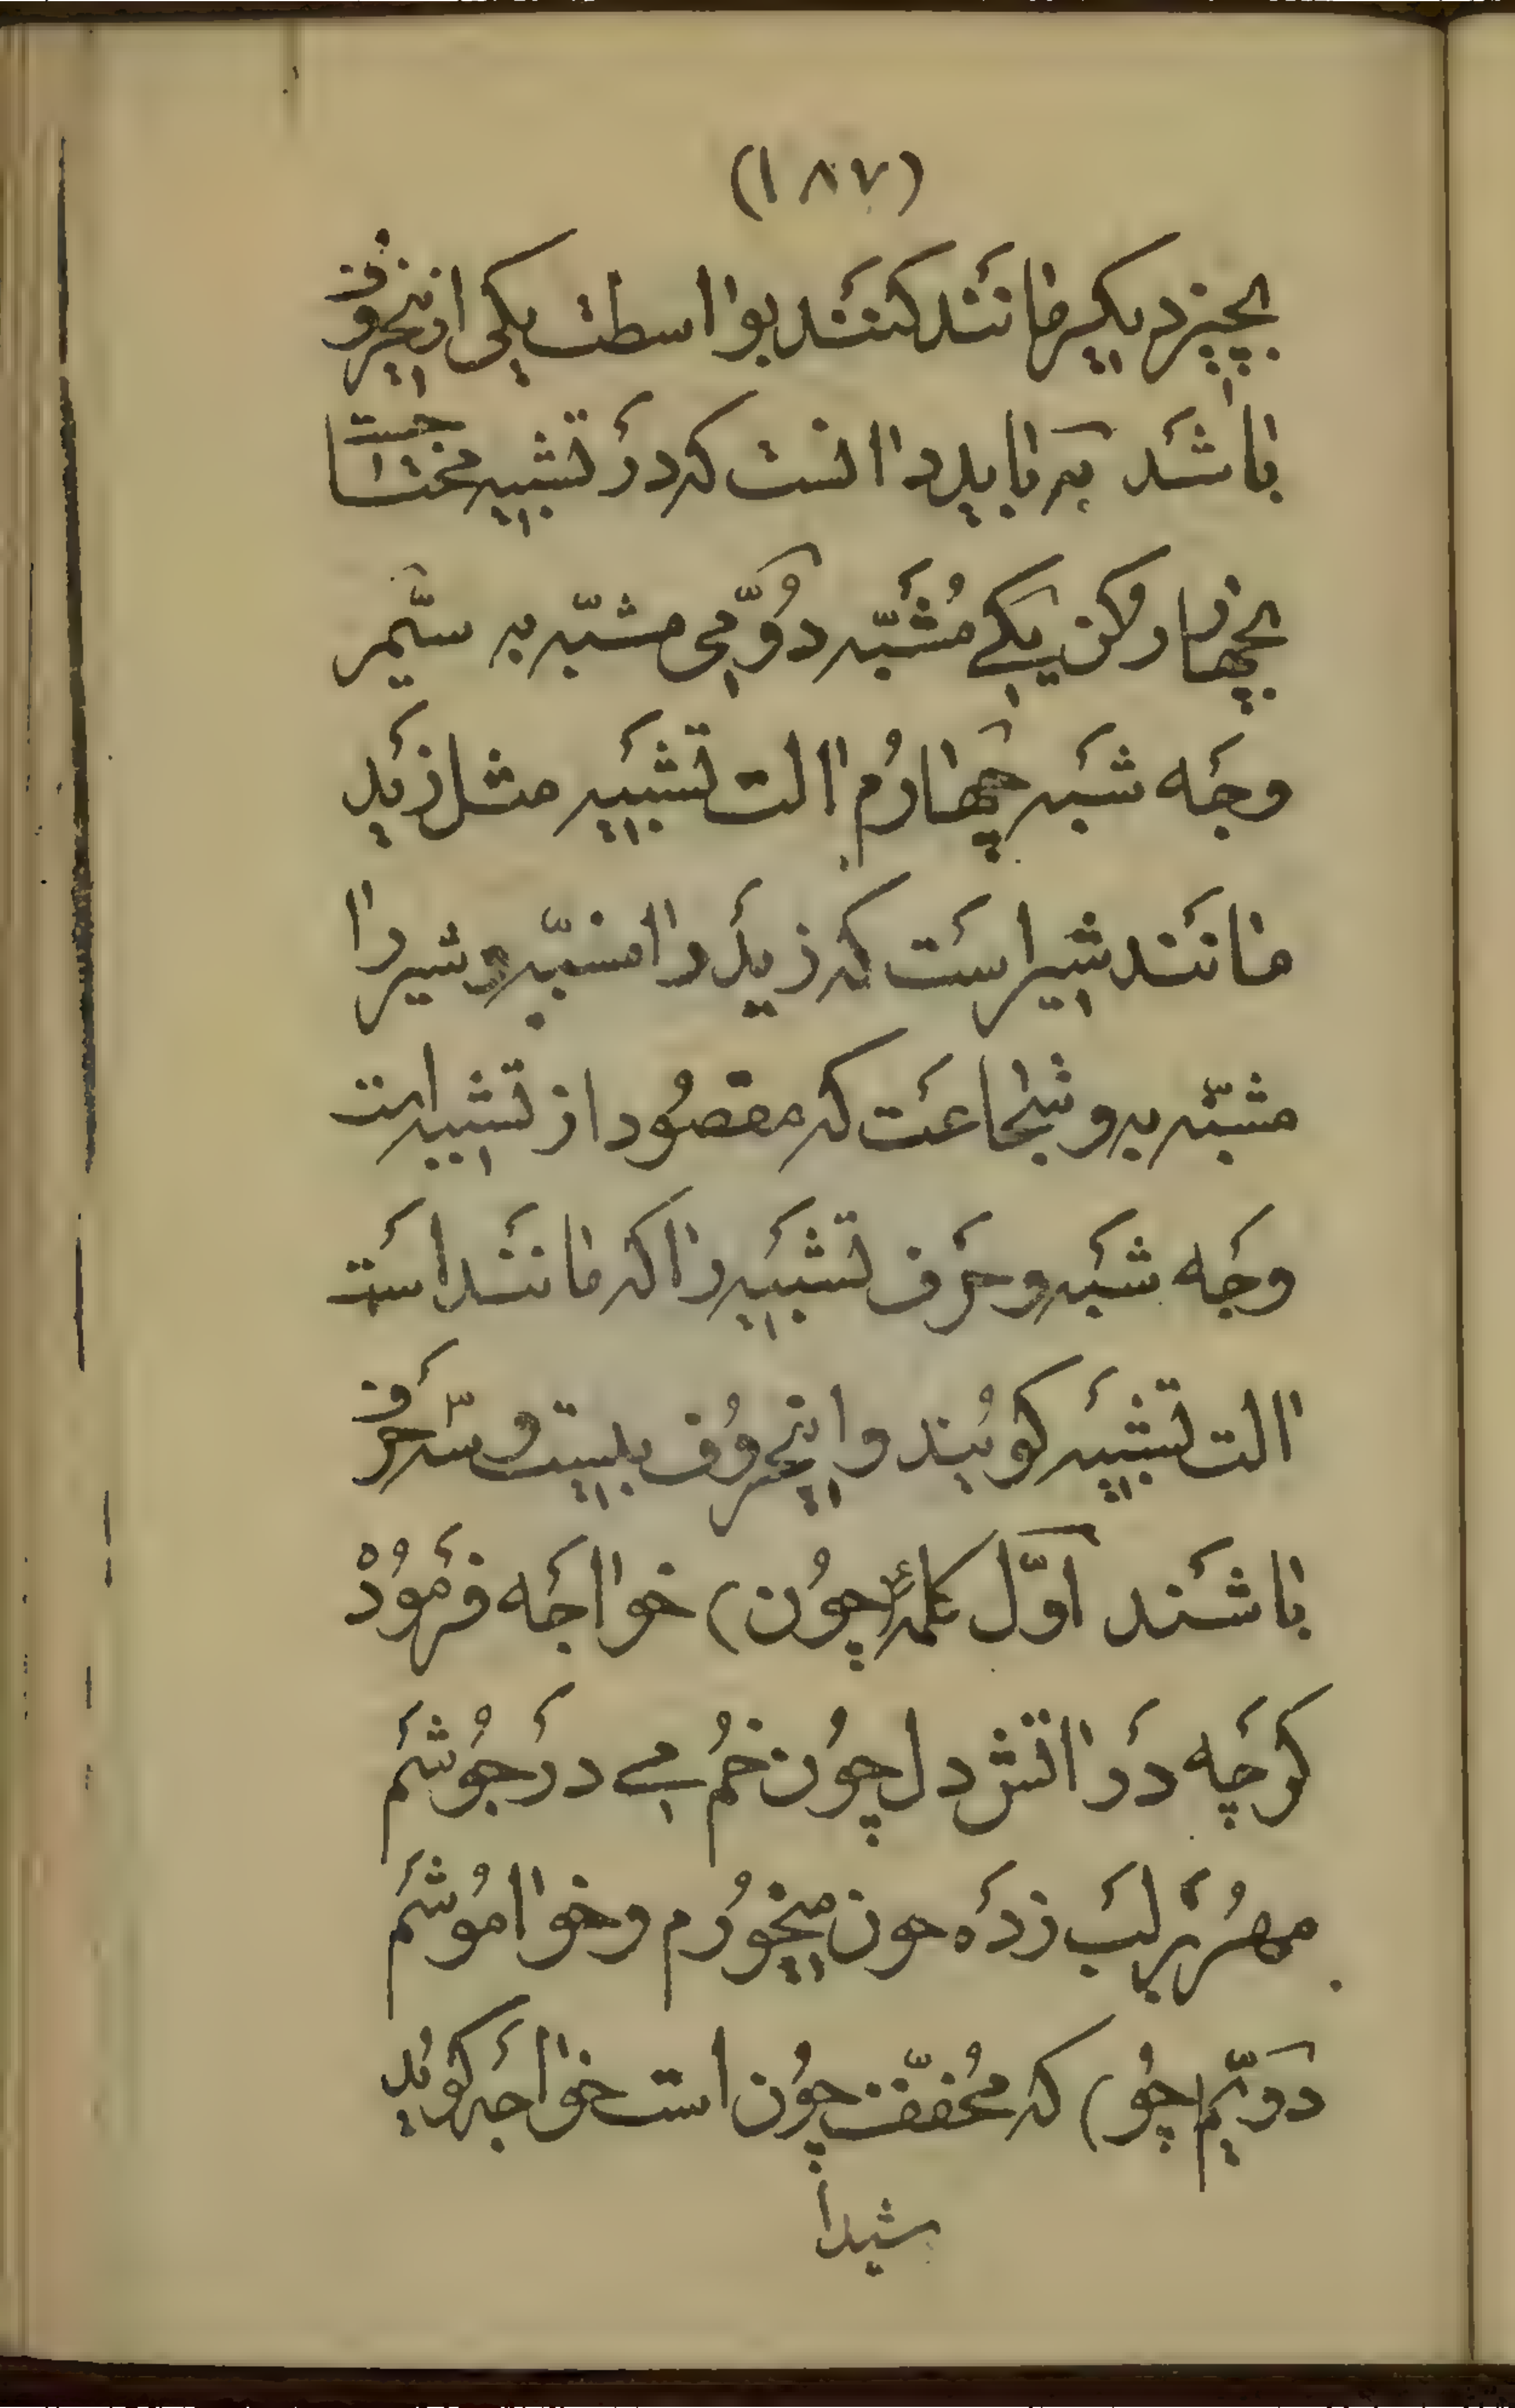 (۱۸۷)
بچیز دیکیر مانَند کنَند بوااسطت یکی ازینحروف
باشَد بدانکه باید داانست که درَ تشبیه محتاجست
بچهار رکن یکے مُشَبّه دُوّمی مشبّه به سیّمر
وجَه شَبَه چهارُم االت تشَبیه مثل زَید
مانَند شیر استَ که زیَد راا مشبّه و شیر راا
مشبّه به و شجاعَت که مقصُود از تشبیه است
وجَه شَبَه و حَرف تشَبیه را که مانَند استَ
االت تشَبیه کویُند و اینحروُف بیست و سّه حَرف
باشَند اوَّل کلمهٔ (چوُن) خوااجَه فرَموُدْ
کرچَه درَ ااتش دل چوُن خُم مے درَ جوُشَم
مهُر بَر لبَ زدَه خون میخوُرم و خواموُشَم
دوَیّم (چوُ) که مُخفّف چوُن است خوااجَه کویُد
شیدا